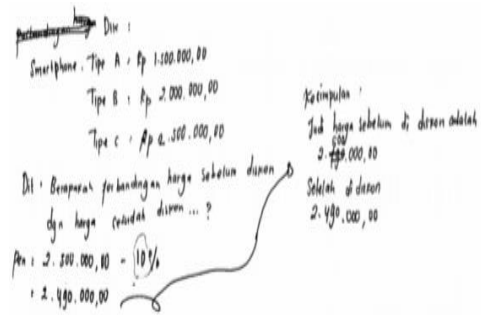 Dik :
Smartphone. Tipe A : Rp 1.500.000,00
Tipe B : Rp 2.000.000,00
Tipe C : Rp 2.500.000,00
Dit : Berapakah perbandingan harga sebelum diskon
dgn harga sesudah diskon ... ?
Pen : 2.500.000,00 - 10%
= 2.490.000,00
Kesimpulan :
Jadi harga sebelum di diskon adalah
2.500.000,00
Setelah di diskon
2.490.000,00